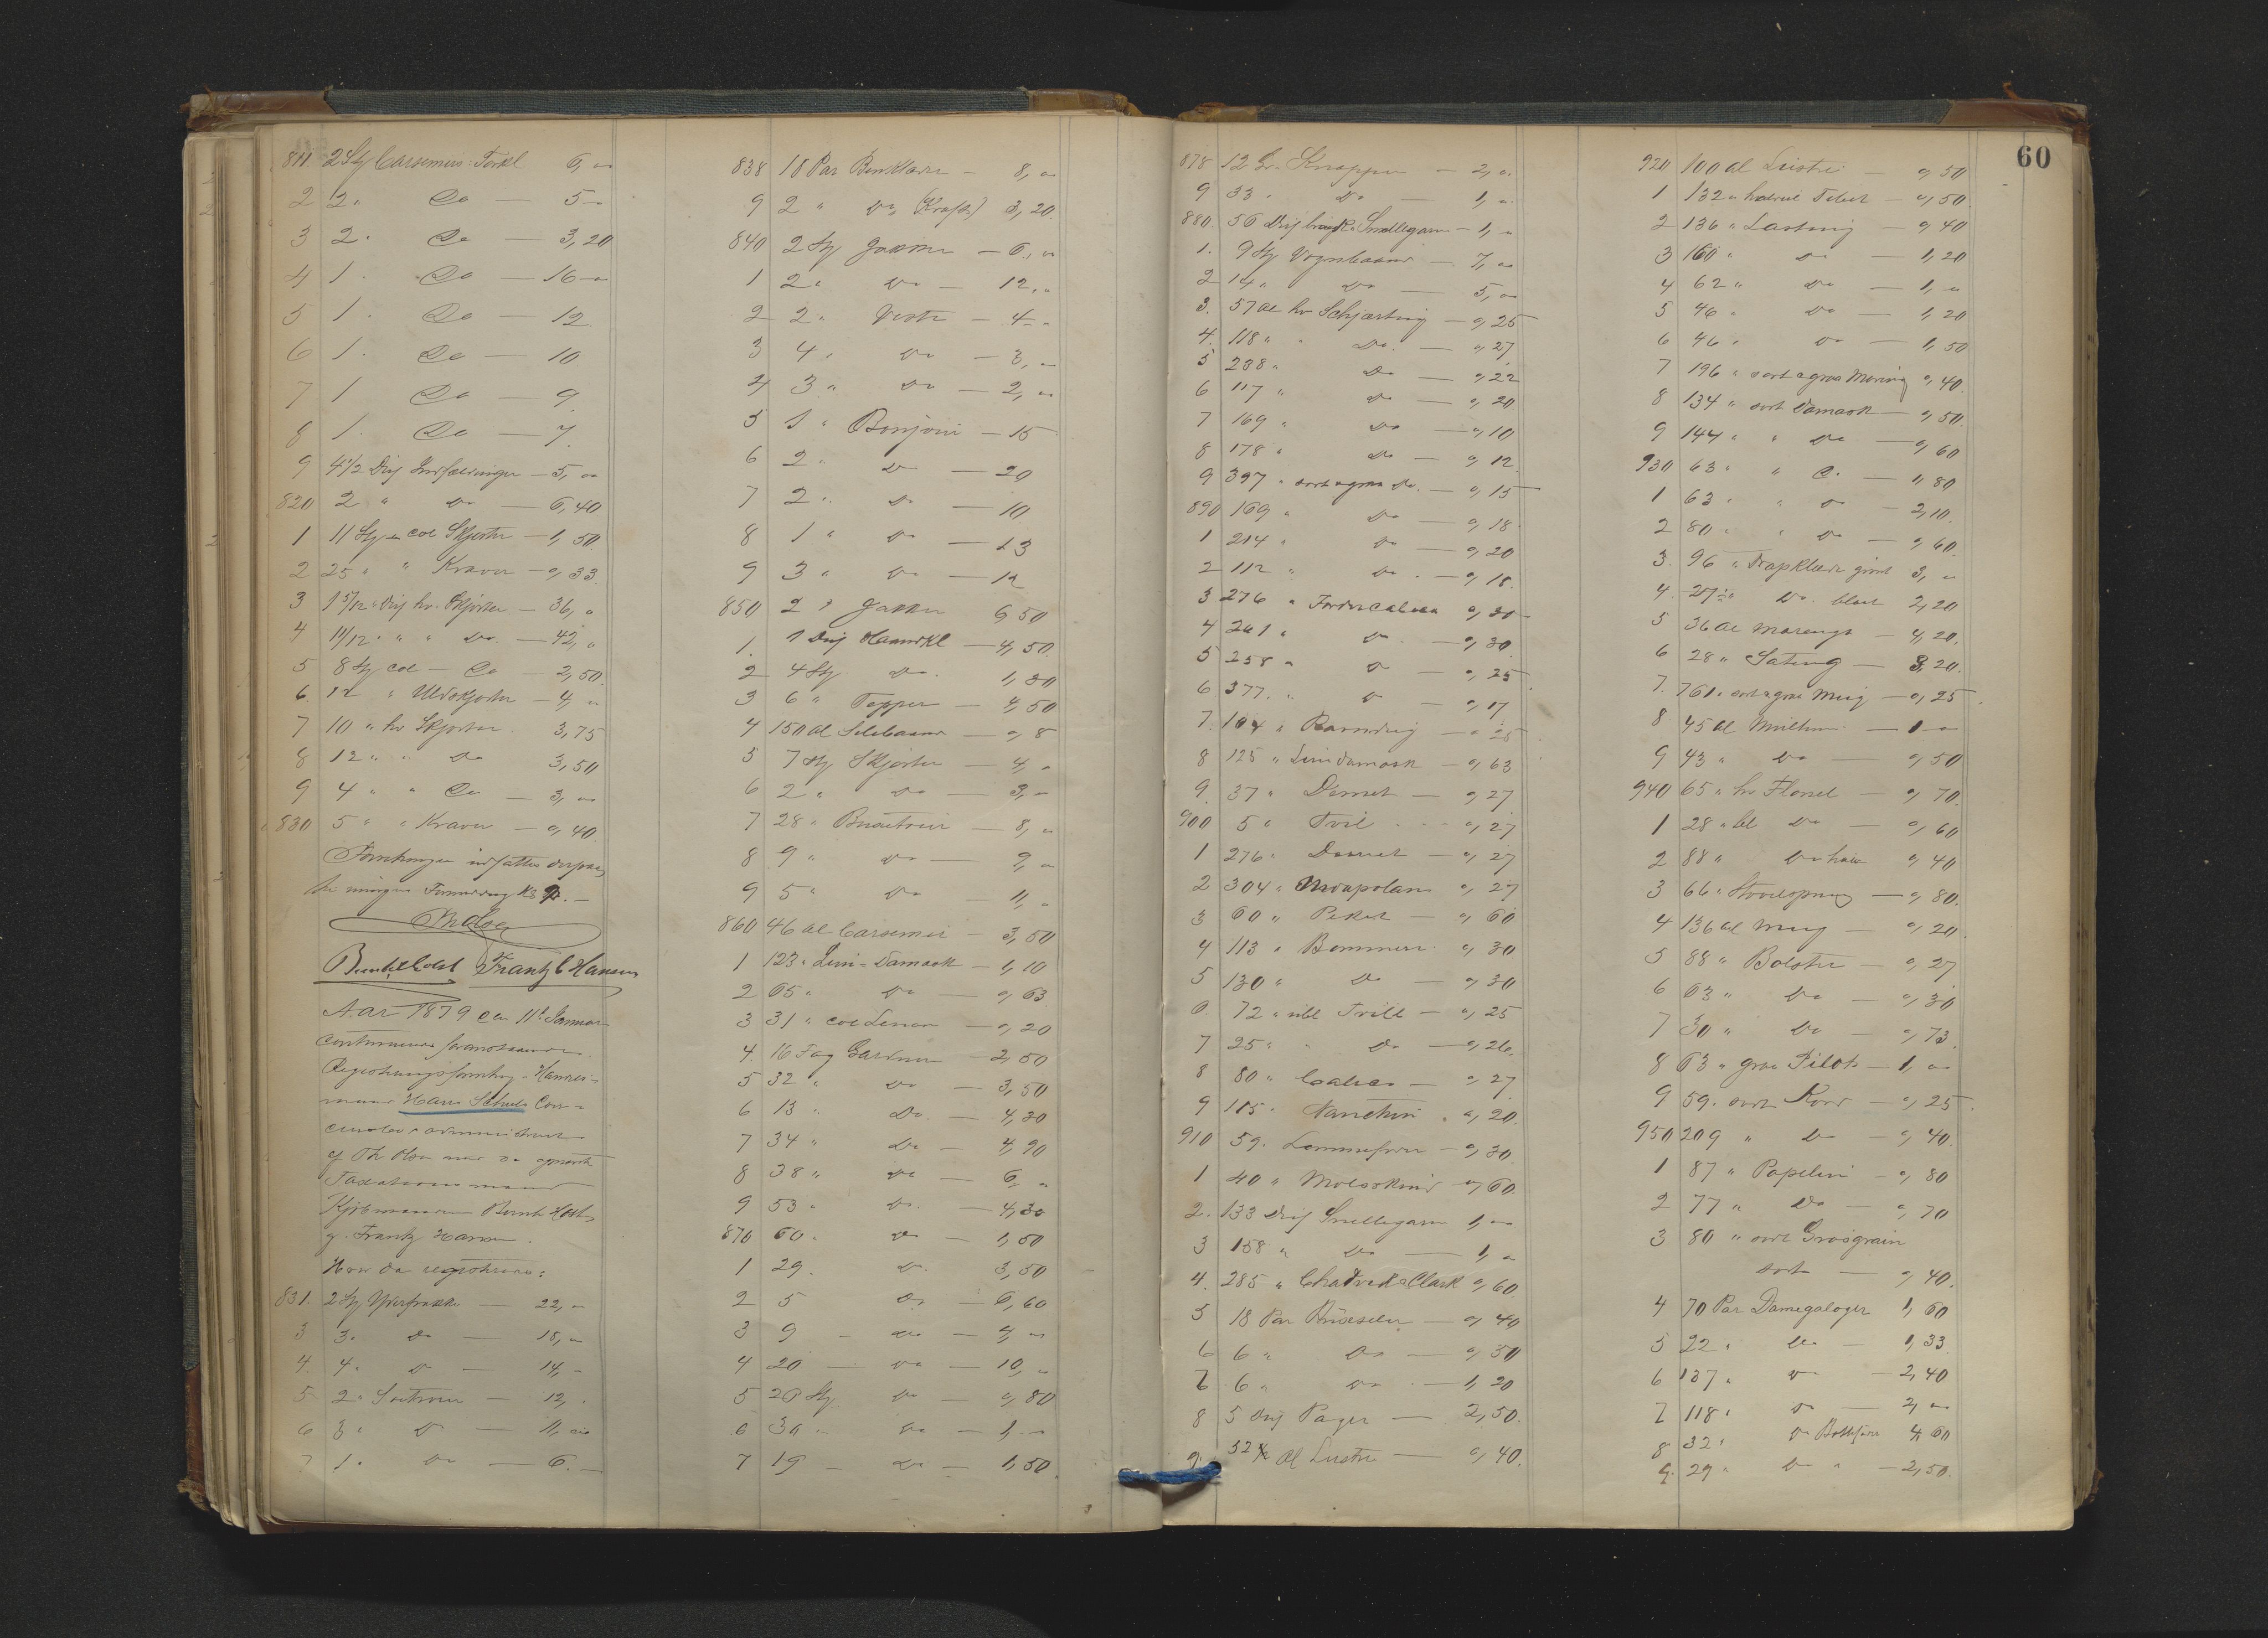 811 2 Stk Carsemirs Tørkl 6, "
2 2 " Do — 5 "
3 2 " Do — 3,20
4 1 " Do — 16 "
5 1 " Do — 12
6 1 " Do — 10
7 1 Do — 9
8 1 " Do — 7
9 4 1/2 Dsj Indfældninger — 5, "
820 2 " Do — 6,40
1 11 Stk col Skjorter — 1,50
2 25 " " Kraver — ",33
3 1 5/12 Dsj hv. Skjorter — 36, "
4 11/12 " " " Do. — 42, "
5 8 Stk col — Do — 2,50
6 12 " Uldskjorter — 4, "
7 10 " hv Skjorter 3,75
8 12 " " Do 3,50
9 4 " " Do — 3, "
830 5 " " Kraver — ",40
Forretningen
Bernt Holst Frantz C Hansen
Aar 1879 den 11te Januar
continueredes foranstaaende
Registreringsforretning i Handels-
mand Hans Schulz Con-
cursbo
af Th Olsen med de opnævnte
Taxationsmænd
Kjøbmændene Bernt Holst
og Frantz Hansen.
Hvor da registreredes:
831. 2 Stk Yderfrakke — 22, "
3 3 " Do — 18, "
4 4 " Do — 14, "
5 2 " Surtrouer — 12, "
6 3 " Do — 11, "
7 1 " Do — 6. —
838 18 Par Benklæder — 8, "
9 2 " Do, (Kraft) 3,20
840 2 Stk Jakker — 6, "
1 2 " Do — 12, "
2 2 " Veste — 4 "
3 4 " Do — 3, "
4 3 " Do — 2, "
5 1 " Bonjour — 15
6 2 " Do — 20
7 2 " Do — 10
8 1 " Do — 13
9 3 " Do — 12
850 2 " Jakker 6,50
1. 1 Dsj Haandkl — 4,50
2 4 Stk Do. 1,80
3 6 " Tepper — 4,50
4 150 Al Silkebaand — ",8
5 7 Stk Skjorter — 4, "
6 2 " Do — 3, "
7 28 " — 8, "
8 9 " Do — 9, "
9 5 " Do 11, "
860 46 Al Carsemir — 3,50
1 123 " Lin-Damask — 1,10
2 65 " Do — ",63
3 31 " col Lenon — ",20
4. 16 Fag Gardiner — 2,50
5 32 " Do — 3,50
6 13 " Do. — 4,30
7 34 " Do — 4,90
8 38 " Do — 6, "
9 53 " Do. — 4,30
870 60 " Do — 1,50
1 29. Do. 3,50
2 5 Do — 6,60
3 9 — Do — 9, "
4 20 — Do — 10, "
5 20 Stk Do — ",80
6 30 " Do — 1, "
7 19 — Do — 1,50
60
878 12 Gr. Knapper — 2, "
9 33 " Do — 1, "
880. 56 Dsj Snellegarn — 1, "
1. 9 Stk Vognbaand — 7, "
2 14 " Do — 5, "
3. 57 Al hv Schjærting — ",25
4. 118 " " Do. — ",27
5 288 " Do — ",22
6 117 " Do — ",20
7 169 " Do — ",10
8 178 " Do — ",12
9 397 " sort og graa Do. — ",15
890 169 " Do — ",18
1 214 " Do — ",20
2 112 " Do. — ",18
3 276 " Fordercalicos ",20
4 261 " Do. — ",30
5 258 " Do — ",25
6 377. " Do — ",17
7. 104 " Ramdrej — ",25
8 125 " Lindamask — ",63
9. 37 " Dimet — ",27
900 5 " Tvil — ",27
1 276 " Domet — ",27
2 304 " Madapolam ",27
3 60 " Peket — ",60
4 113 " Bommesi ",30
5 130 " Do — ",30
6. 72 " Tvill — ",25
7 25 " " Do — ",26
8 80 " Calicos — ",27
9 115 " Nanckin ",20
910 59. Lommefoer — ",30
1 40 " Molsskind — ",60
2. 133 Dsj Snellegarn 1, "
3 158 " Do — 1, "
4. 285 " Chadwick & Clark ",60
5 18 Par — ",40
6 6 " Do — ",50
7 6 " Do — 1,20
8 5 Dsj — 2,50
9. 52 1/2 Al Lustre — ",40
920 100 Al Lustre — ",50
1 132 " Tibet — ",50
2 136 " Lasting — ",40
3 160 " Do — 1,20
4 62 " Do — 1, "
5 46 " Do 1,20
6 46 " Do — 1,50
7 196 " sort og graa ",40
8 134 " sort Damask — ",50
9 144 " " Do — ",60
930 63 " " Do — 1,80
1 63 " " Do — 2,10
2 80 " " Do — ",60
3. 96 " Trapklæde 3, "
4. 27 1/2 " Do. 2,20
5 36 Al Marengo — 4,20
6 28 " Sating — 3,20
7. 761 " sort og graa — ",25
8 45 Al Multum — 1 "
9 43 " Do — ",50
940 65 " hv Flonel — ",70
1 28 " bl Do — ",60
2 88 " Do ",40
3 66 " — ",80
4 136 Al — ",20
5 88 " Bolster — ",27
6 63 " Do — ",30
7 30 " Do — ",73
8 63 " graa Pilot — 1, "
9 59. sort Kord — ",25
950 209 " Do — ",40
1 87 " Popelin — ",80
2 77 " Do — ",70
3 80 " sort Grosgrain
sort — ",40
4 70 Par Damegaloger 1,60
5 22 " Do — 1,33
6 137 " Do — 2,40
7 118 " Do — 2, "
8 32 " Do 4,60
9. 29 " Do " — 2,50